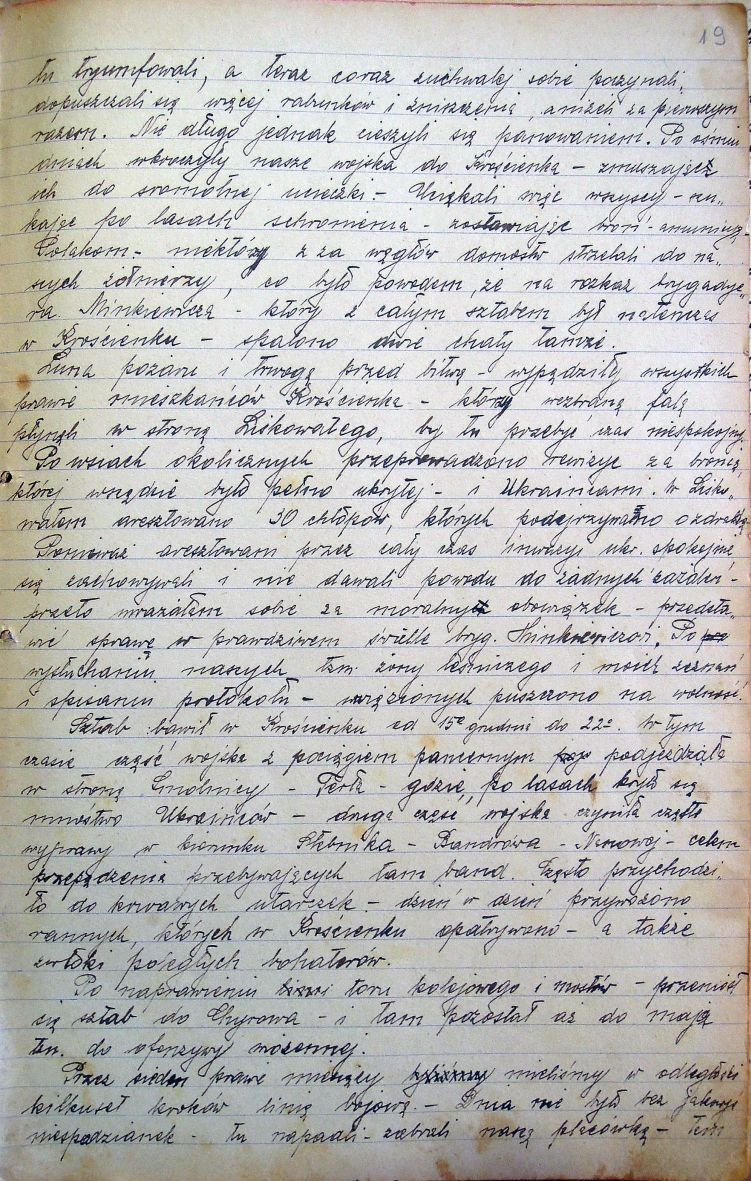 19
tu tryumfowali, a teraz coraz zuchwalej sobie poczynali,
dopuszczali się więcej rabunków i zniszczenia, aniżeli za pierwszym
razem. Nie długo jednak cieszyli się panowaniem. Po ośmiu
dniach wkroczyły nasze wojska do Krościenka – zmuszając
ich do sromotnej ucieczki. – Uciekali więc wszyscy – szu-
kając po lasach schronienia – zostawiając broń – amunicję –
Polakom – niektórzy z za węgłów domostw strzelali do na-
szych żołnierzy, co było powodem, że na rozkaz brygadye-
ra Minkiewicza – który z całym sztabem był natenczas
w Krościenku – spalono dwie chaty tamże.
Łuna pożaru i trwoga przed bitwą – wypędziły wszystkich
prawie mieszkańców Krościenka – którzy wezbraną falą
płynęli w stronę Liskowatego, by tu przebyć czas niespokojny.
Po wsiach okolicznych przeprowadzono rewizye za bronią,
której wszędzie było pełno ukrytej – i Ukraińcami. W Lisko-
watem aresztowano 30 chłopów, których podejrzywano o zdradę.
Ponieważ aresztowani przez cały czas inwazyi ukr. spokojnie
się zachowywali i nie dawali powodu do żadnych zażaleń –
przeto uważałem sobie za moralny obowiązek – przedsta-
wić sprawę w prawdziwem świetle bryg. Minkiewiczowi. Po
wysłuchaniu naszych tzn. żony leśniczego i moich zeznań
i spisaniu protokołu – uwięzionych puszczono na wolność.
Sztab bawił w Krościenku od 15º grudnia do 22º. W tym
czasie część wojska z pociągiem pancernym podjeżdżała
w stronę Smolnicy – Terła – gdzie po lasach kryło się
mnóstwo Ukraińców – druga część wojska czyniła częste
wyprawy w kierunku Stebnika – Bandrowa – Nanowej – celem
przepędzenia przebywających tam band. Często przychodzi-
ło do krwawych utarczek – dzień w dzień przywożono
rannych, których w Krościenku opatrywano – a także
zwłoki poległych bohaterów.
Po naprawieniu toru kolejowego i mostów – przeniósł
się sztab do Chyrowa – i tam pozostał aż do maja
tzn. do ofenzywy wiosennej.
Przez siedm prawie miesięcy mieliśmy w odległości
kilkuset kroków linię bojową. – Dnia nie było bez jakiejś
niespodzianek – tu napadli – zabrali naszą placówkę – tam